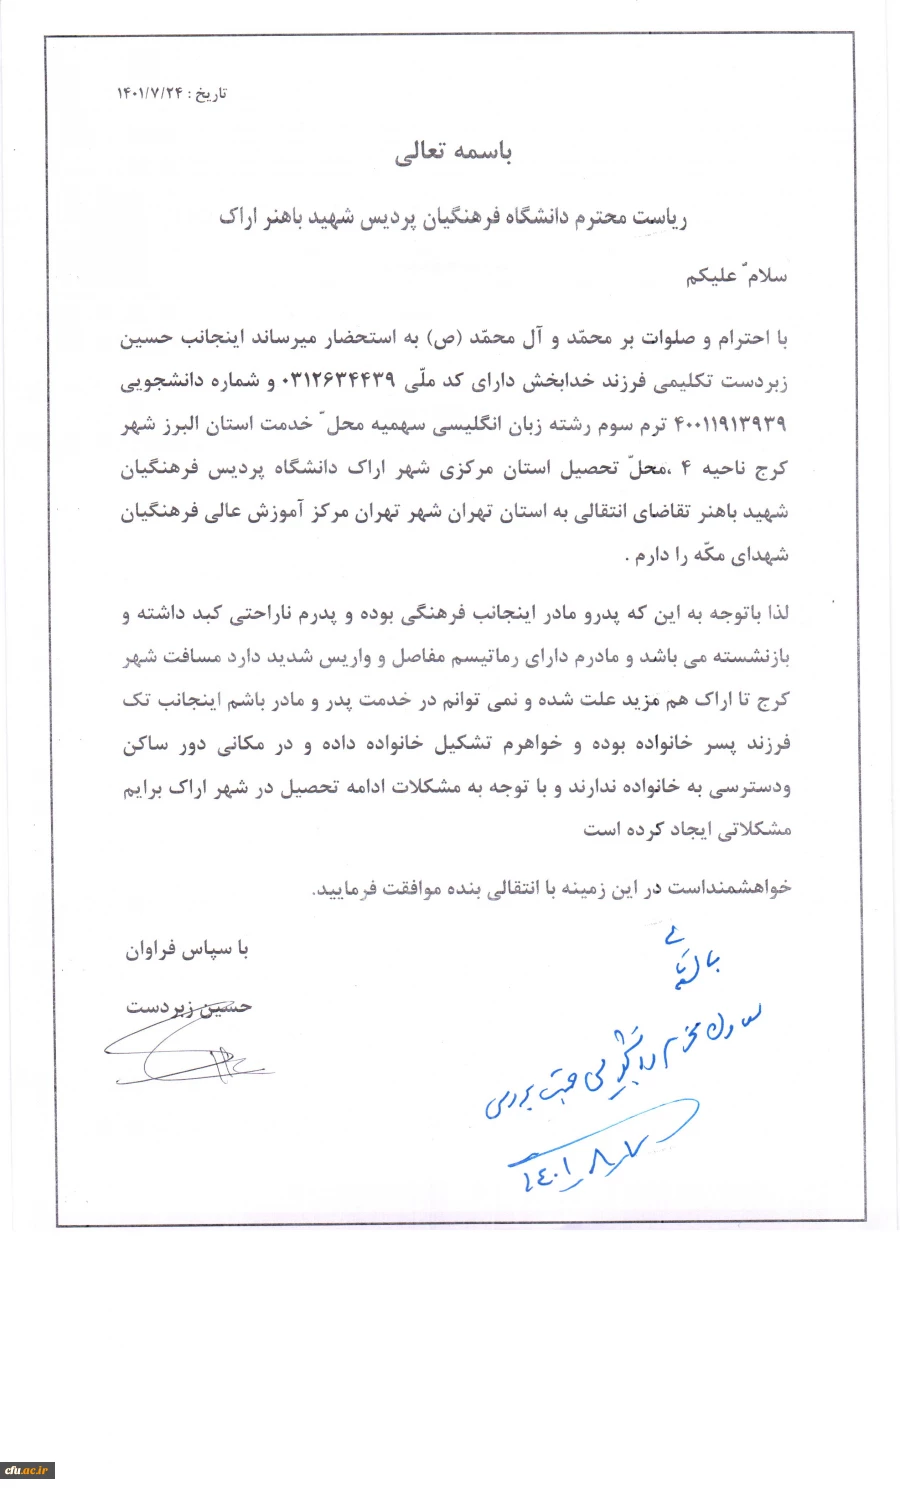 تاریخ : ۱۴۰۱/۷/۲۴
باسمه تعالی
ریاست محترم دانشگاه فرهنگیان پردیس شهید باهنر اراک
سلام ّ علیکم
با احترام و صلوات بر محمّد و آل محمّد (ص) به استحضار میرساند اینجانب حسین
زبردست تکلیمی فرزند خدابخش دارای کد ملّی ۰۳۱۲۶۳۴۴۳۹ و شماره دانشجویی
۴۰۰۱۱۹۱۳۹۳۹ ترم سوم رشته زبان انگلیسی سهمیه محل ّ خدمت استان البرز شهر
کرج ناحیه ۴ ،محلّ تحصیل استان مرکزی شهر اراک دانشگاه پردیس فرهنگیان
شهید باهنر تقاضای انتقالی به استان تهران شهر تهران مرکز آموزش عالی فرهنگیان
شهدای مکّه را دارم .
لذا باتوجه به این که پدرو مادر اینجانب فرهنگی بوده و پدرم ناراحتی کبد داشته و
بازنشسته می باشد و مادرم دارای رماتیسم مفاصل و واریس شدید دارد مسافت شهر
کرج تا اراک هم مزید علت شده و نمی توانم در خدمت پدر و مادر باشم اینجانب تک
فرزند پسر خانواده بوده و خواهرم تشکیل خانواده داده و در مکانی دور ساکن
ودسترسی به خانواده ندارند و با توجه به مشکلات ادامه تحصیل در شهر اراک برایم
مشکلاتی ایجاد کرده است
خواهشمنداست در این زمینه با انتقالی بنده موافقت فرمایید.
با سپاس فراوان
حسین زبردست
معاون محترم دانشجویی جهت بررسی
cfu.ac.ir